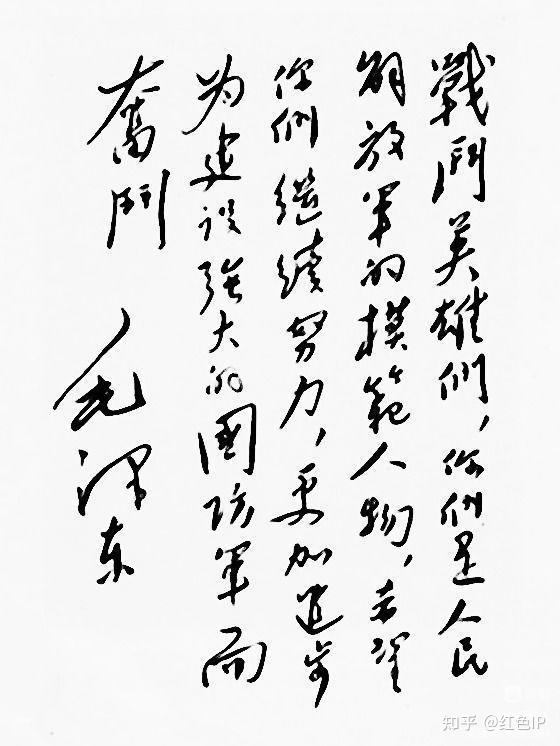 戰鬥英雄們，你們是人民
解放軍的模範人物，希望
你們继續努力，更加進步
为建设强大的國防軍而
奮鬥
毛泽东
知乎 @红色IP